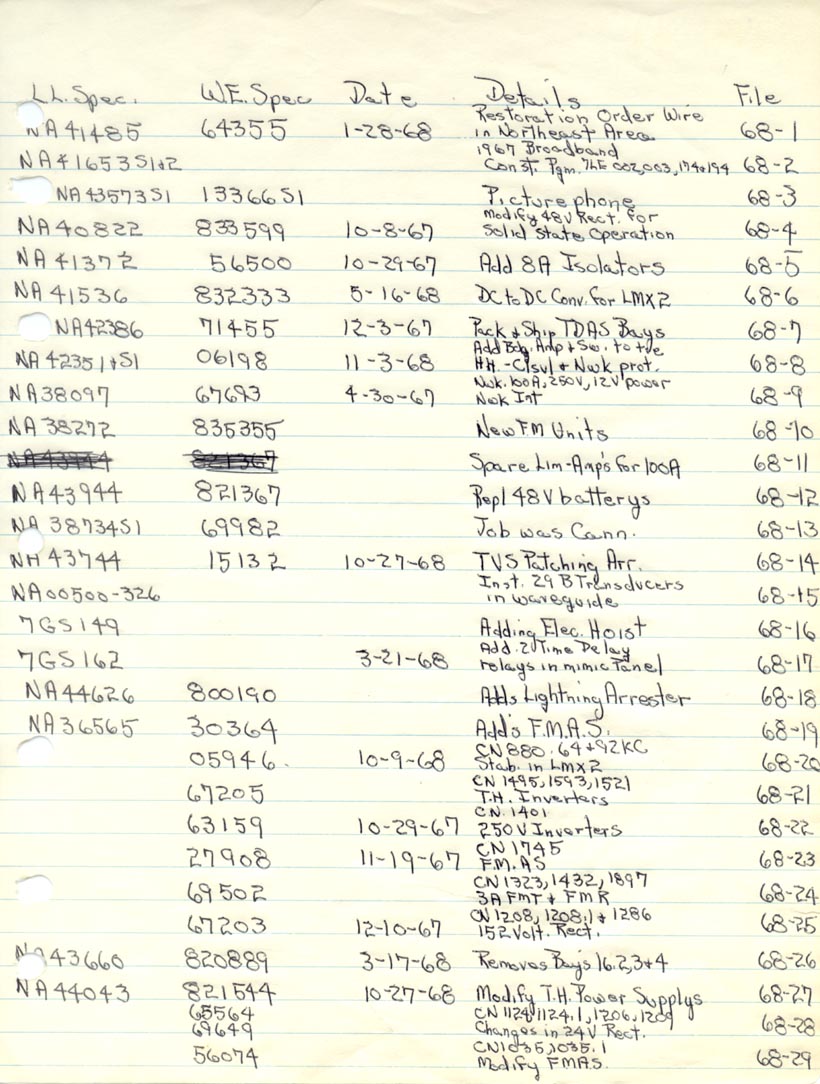 L.L. Spec. W.E. Spec Date Details File
Restoration Order Wire
NA 41485 64355 1-28-68 in Northeast Area 68-1
1967 Broadband
NA 41653 S1+2 Const. Pgm. 002,003,174+194 68-2
NA 43573 S1 13366 S1 Picturephone 68-3
Modify 48V Rect. for
NA 40822 833599 10-8-67 Solid State Operation 68-4
NA 41372 56500 10-29-67 Add 8A Isolators 68-5
NA 41536 832333 5-16-68 DC to DC Conv. for LMX2 68-6
NA42386 71455 12-3-67 Pack + Ship TDAS Bays 68-7
Add Bdg. Amp + Sw. to +ve
NA 42351+S1 06198 11-3-68 HH. + Nwk prot. 68-8
Nwk. 100A, 250V, 12V power
NA38097 67693 4-30-67 Nwk Int 68-9
NA 38272 835355 New F.M Units 68-10
NA43944 821367 Spare Lim-Amp's for 100A 68-11
NA43944 821367 Repl 48V batterys 68-12
NA 38734S1 69982 Job was Cann. 68-13
NA 43744 15132 10-27-68 TVS Patching Arr. 68-14
Inst. 29 B Transducers
NA00500-326 in waveguide 68-15
7GS149 Adding Elec. Hoist 68-16
Add. 2 Time Delay
7GS162 3-21-68 relays in mimic Panel 68-17
NA44626 800190 Adds Lightning Arrester 68-18
NA36565 30364 Add's F.M.A.S. 68-19
CN 880. 64+92KC
05946. 10-9-68 Stab. in LMX2 68-20
CN 1495, 1593, 1521
67205 T.H. Inverters 68-21
CN. 1401
63159 10-29-67 250V Inverters 68-22
CN 1745
27908 11-19-67 F.M.AS 68-23
CN 1323, 1432, 1897
69502 3A FMT + FMR 68-24
CN 1208, 1208.1 + 1286
67203 12-10-67 152 Volt. Rect. 68-25
NA43660 820889 3-17-68 Removes Bays 16.2,3+4 68-26
NA44043 821544 10-27-68 Modify T.H. Power Supplys 68-27
65564 CN 1124, 1124.1, 1206, 1209
69649 Changes in 24V Rect. 68-28
CN1035,1035.1
56074 Modify FMAS. 68-29